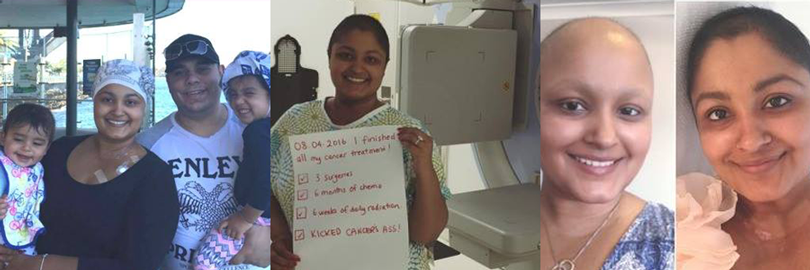 ENLEY
PRI
08.04.2016 I finished
all my cancer treatment!
3 surgeries
6 months of chemo
6 weeks of daily radiation
KICKED CANCER'S ASS!